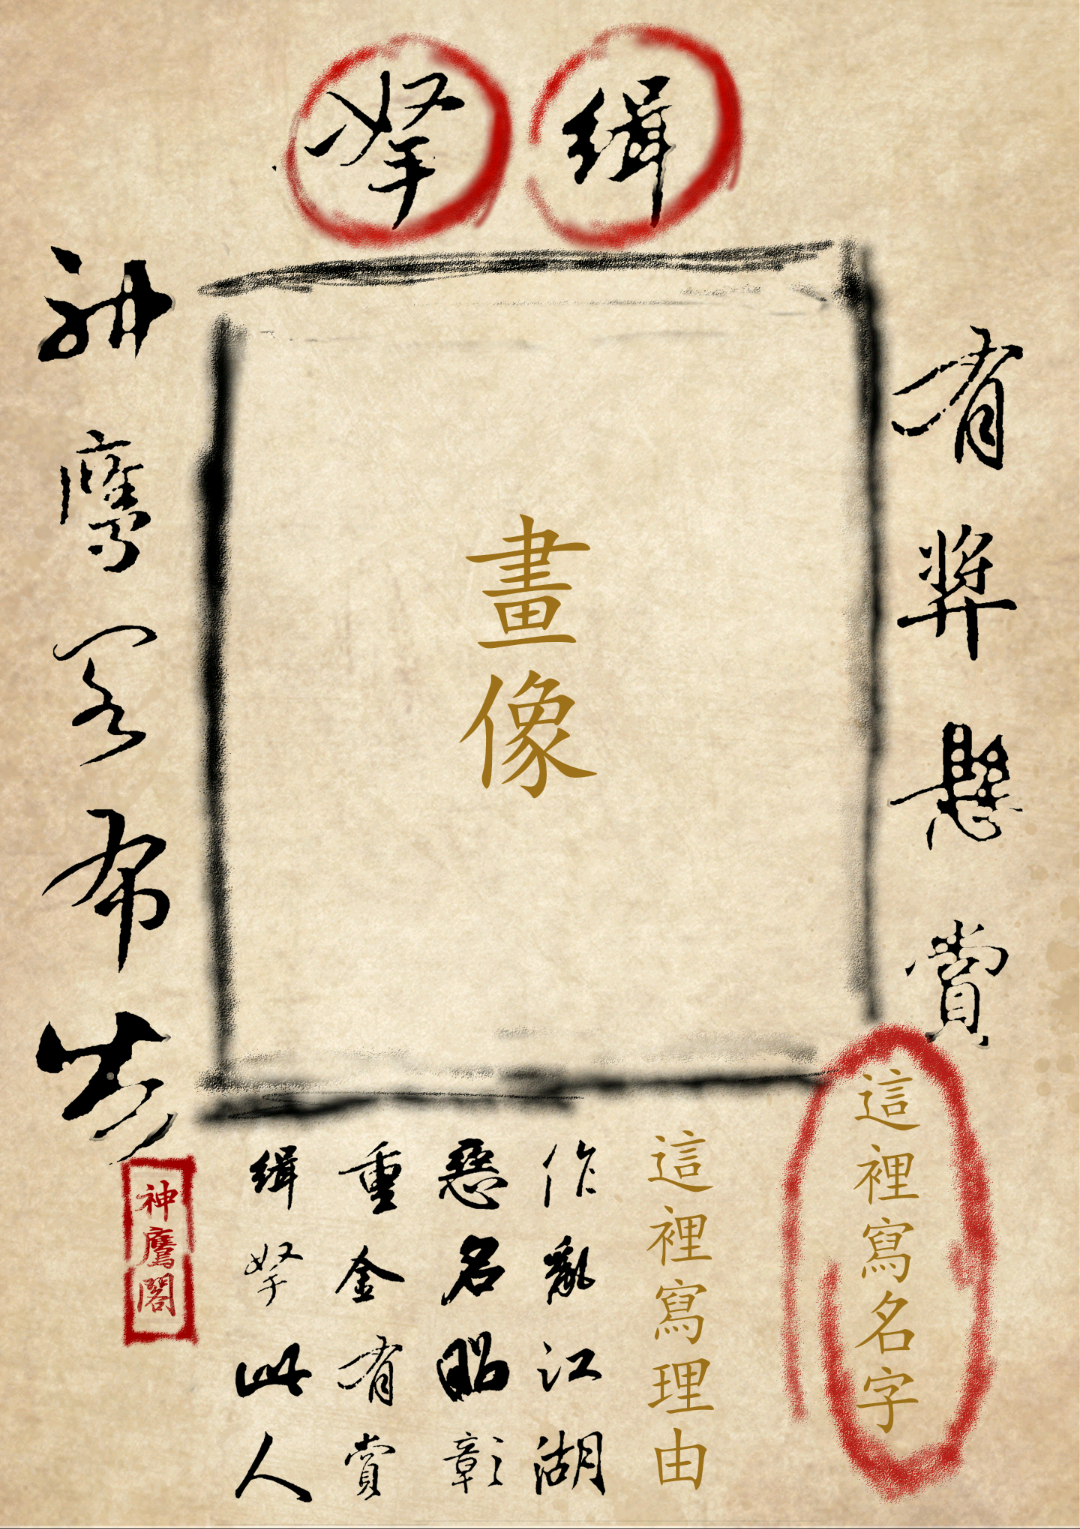 緝拏
有獎懸賞
畫像
這裡寫名字
這裡寫理由
作亂江湖
惡名昭彰
重金有賞
緝拏此人
神鷹閣布告
神鷹閣